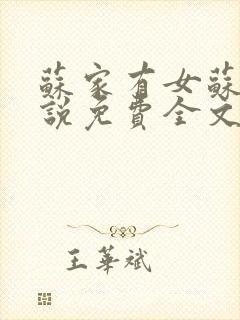 蘇家有女蘇
說免費全文
王華斌